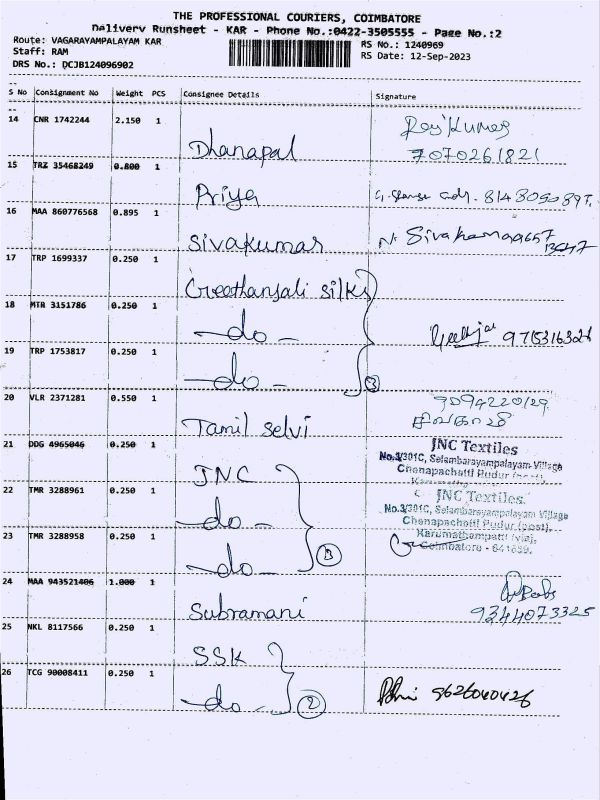 THE PROFESSIONAL COURIERS, COIMBATORE
Delivery Runsheet - KAR - Phone No.:0422-3505555 - Page No.:2
Route: VAGARAYAMPALAYAM KAR
RS No.: 1240969
Staff: RAM
RS Date: 12-Sep-2023
DRS No.: DCJB124096902
S No Consignment No Weight PCS Consignee Details Signature
14 CNR 1742244 2.150 1 Dhanapal Rajkumar
7070261821
15 TRZ 35468249 0.800 1 Priya
16 MAA 860776568 0.895 1 Sivakumar N.
17 TRP 1699337 0.250 1 Geethanjali silks
18 MTR 3151786 0.250 1 -do-
19 TRP 1753817 0.250 1 -do- 3
20 VLR 2371281 0.550 1 Tamil selvi 9094220129
சிவகாமி
21 DDG 4965046 0.250 1 JNC JNC Textiles
No.3/301C, Selambarayampalayam Village
Chenapachetti Pudur (post),
22 TMR 3288961 0.250 1 -do- JNC Textiles.
No.3/301C, Selambarayampalayam Village
Chenapachetti Pudur (post),
23 TMR 3288958 0.250 1 -do- 3 Karumathampatti (via),
Coimbatore - 641659.
24 MAA 943521406 1.000 1 Subramani
9344073325
25 NKL 8117566 0.250 1 SSK
26 TCG 90008411 0.250 1 -do- 2 9626040426